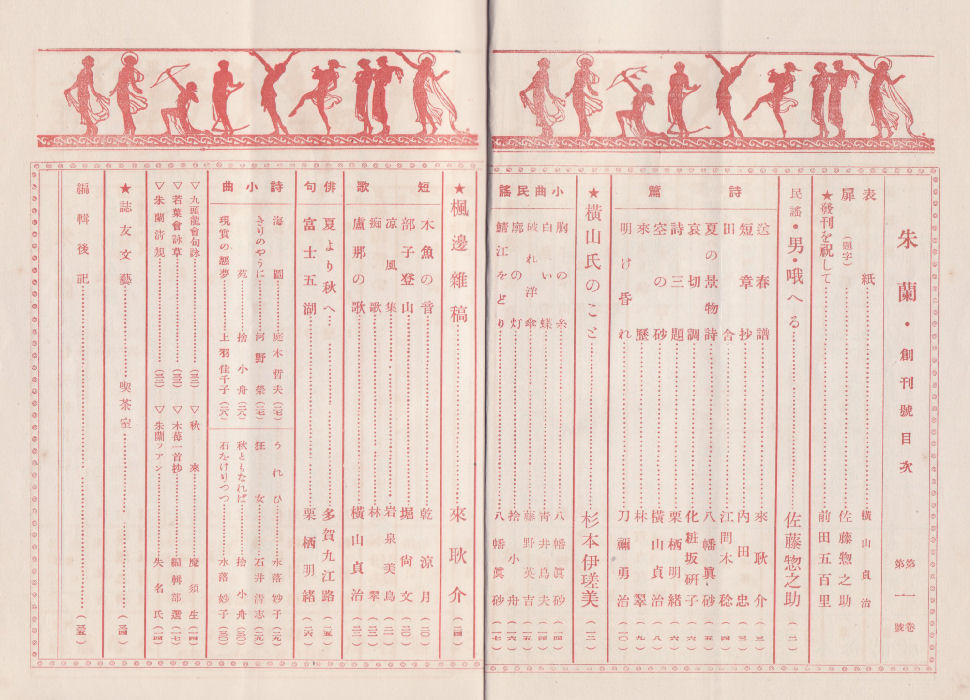 朱蘭・創刊號目次 第一巻 第一號
表紙 横山貞治
扉(題字) 佐藤惣之助
★發刊を祝して 前田五百里
民謠・男・哦へる 佐藤惣之助 (二)
詩篇
送春譜 來耿介 (三)
短章抄 內田忠 (三)
田舎 江間木稔 (四)
夏の景物詩 八幡眞砂 (五)
哀切調 化粧坂硏子 (六)
詩三題 栗栖明緒 (六)
空の砂 横山貞治 (八)
來歷 林翠 (九)
明け昏れ 刀禰勇治 (一〇)
★横山氏のこと 杉本伊瑳美 (一二)
小曲民謠
胸の糸 八幡眞砂 (一四)
白い蝶 青井鳥夫 (一四)
破れ洋傘 藤野英吉 (一五)
廓の灯 捨小舟 (一六)
鯖江をどり 八幡眞砂 (一七)
★楓邊雜稿 來耿介 (一四)
短歌
木魚の音 乾涼月 (二〇)
部子登山 堀尙文 (二〇)
凉風集 岩泉美鳥 (二一)
痴歌 林翠 (二二)
盧那の歌 横山貞治 (二三)
俳句
夏より秋へ 多賀九江路 (二五)
富士五湖 栗栖明緒 (二六)
詩小曲
海圖 庭木哲夫 (二七)
きりのやうに 河野榮 (二七)
苑 捨小舟 (二八)
現實の惡夢 上羽佳千子 (二八)
うれひ 永落妙子 (二九)
狂女 石井清志 (二九)
秋ともなれば 捨小舟 (三〇)
石をけりつつ 水落妙子 (三〇)
▽九頭龍會句詠 (三三)
▽若葉會詠草 (三三)
▽朱蘭清規 (三三)
▽秋來 魔須生 (一四)
▽木苺一首抄 編輯部選 (一七)
▽朱蘭ファン 失名氏 (一四)
★誌友文藝 喫茶室 (三四)
編輯後記 (三五)